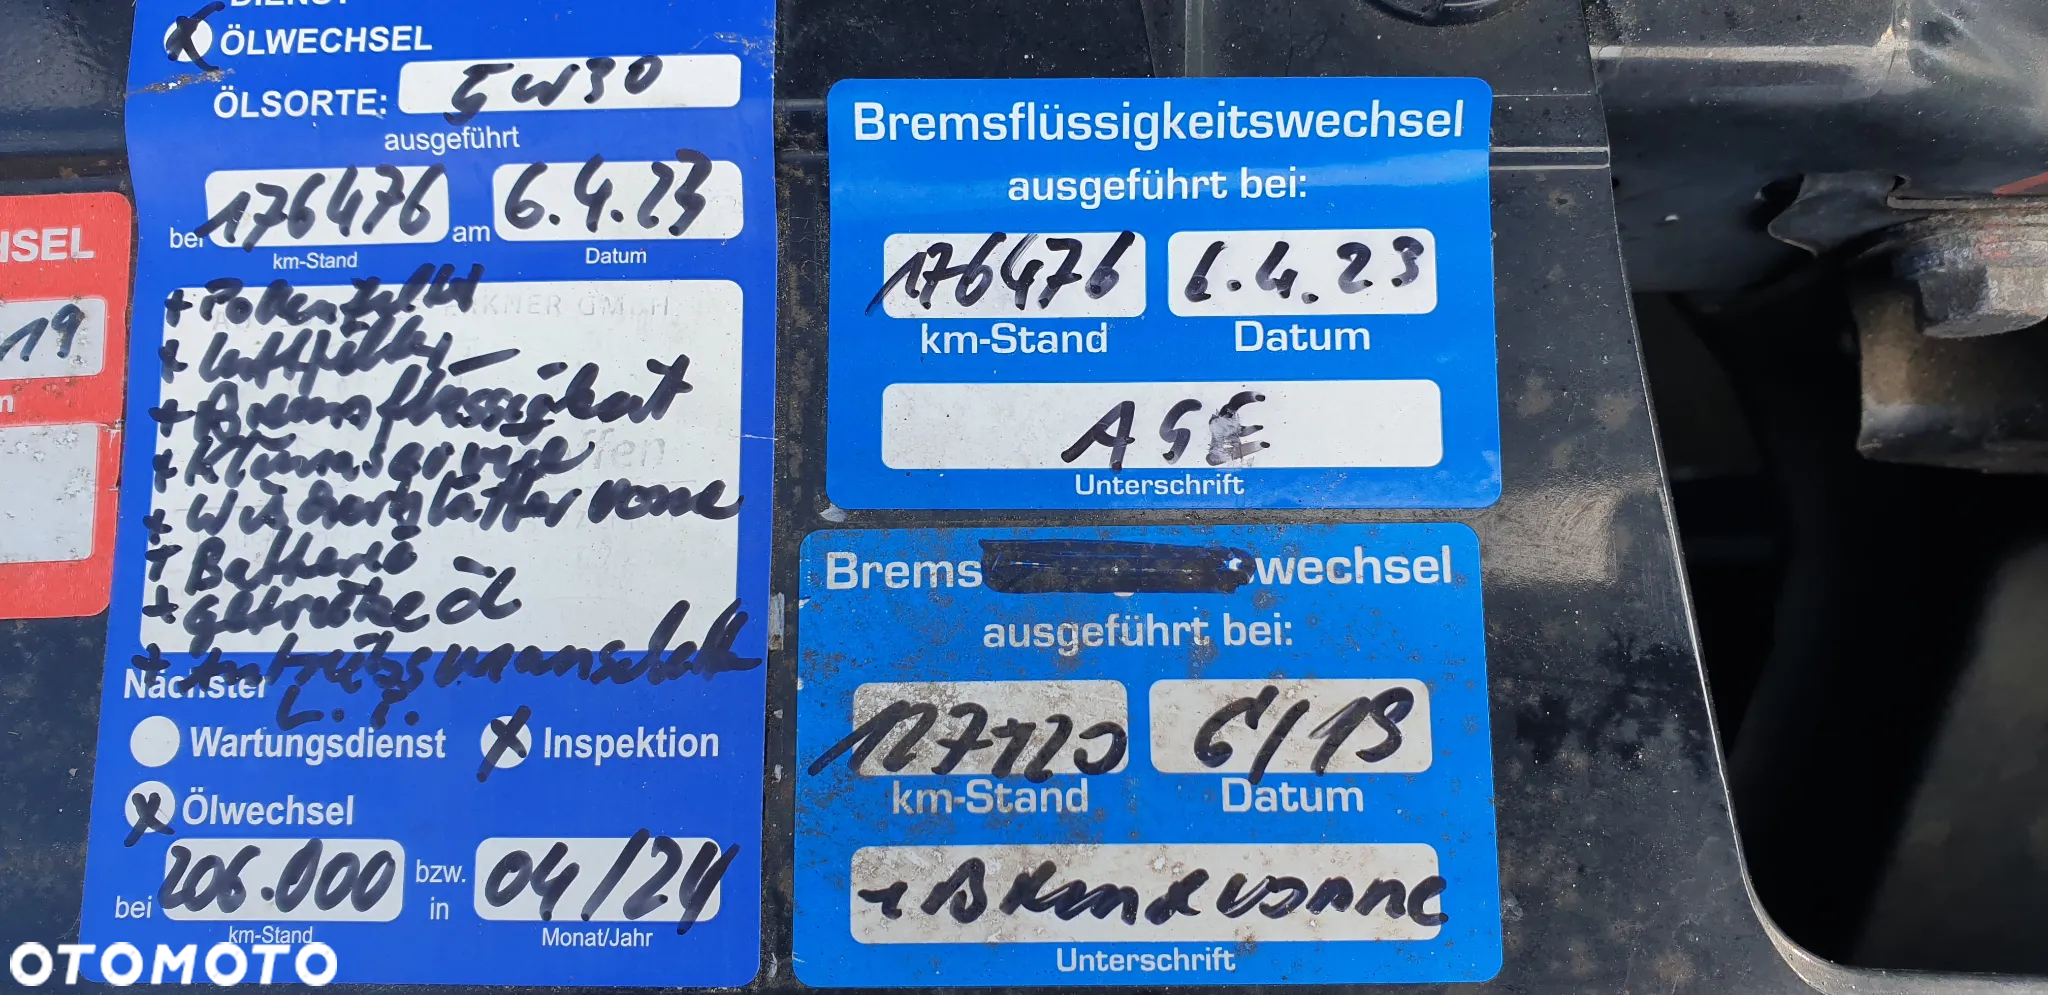 HSEL
19
DIENST
X ÖLWECHSEL
ÖLSORTE: 5W30
ausgeführt
bei 176476 am 6.4.23
km-Stand Datum
+ Pollenfilter
+ Luftfilter
+ Bremsflüssigkeit
+ Klimaservice
+ Wischerblätter vorne
+ Batterie
+ getriebeöl
+ Antriebsmanschette
L.
Nächster
Wartungsdienst X Inspektion
X Ölwechsel
bei 206.000 bzw. in 04/24
km-Stand Monat/Jahr
Bremsflüssigkeitswechsel
ausgeführt bei:
176476 6.4.23
km-Stand Datum
AGE
Unterschrift
Brems swechsel
ausgeführt bei:
127420 6/19
km-Stand Datum
+ Bremse vorne
Unterschrift
OTOMOTO